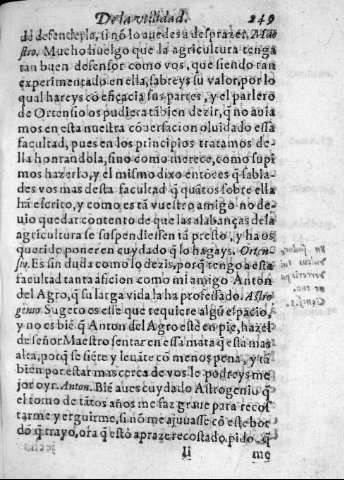 De la vtilidad. 249
dē defenderla, si nō lo auedes a desprazer. Mae
stro. Mucho huelgo que la agricultura tenga
tan buen defensor como vos, que siendo tan
experimentado en ella, sabreys su valor, por lo
qual hareys cō eficacia sus partes, y el parlero
de Ortensio os pudiera tābien dezir, q̄ no auia
mos en esta nuestra cōuersacion oluidado essa
facultad, pues en los principios tratamos de-
lla honrandola, sino como merece, como supi
mos hazerlo, y el mismo dixo entōces q̄ sabia-
des vos mas desta facultad q̄ quātos sobre ella
hā escrito, y como estā vuestro amigo no de-
uio quedar contento de que las alabanças dela
agricultura se suspendiessen tā presto, y ha os
querido poner en cuydado q̄ lo hagays. Orten-
sio. Es sin duda como lo dezis, porq̄ tengo a esta
facultad tanta aficion como mi amigo Anton
del Agro, q̄ su larga vida la ha professado. Astro
genio Sugeto es esse que requiere algū espacio,
y no es biē q̄ Anton del Agro estē en pie, hazel
de señor Maestro sentar en essa mata q̄ esta mas
alta, porq̄ se siēte y leuāte cō menos pena, y tā
bien por estar mas cerca de vos le podreys me
jor oyr. Anton. Biē aues cuydado Astrogenio q̄
el tomo de tātos años me faz graue para recos
tarme y erguirme, si nō me ajuuasse cō este bor
dō q̄ trayo, ora q̄ estō a praze, recostado pido, q̄
Ii me